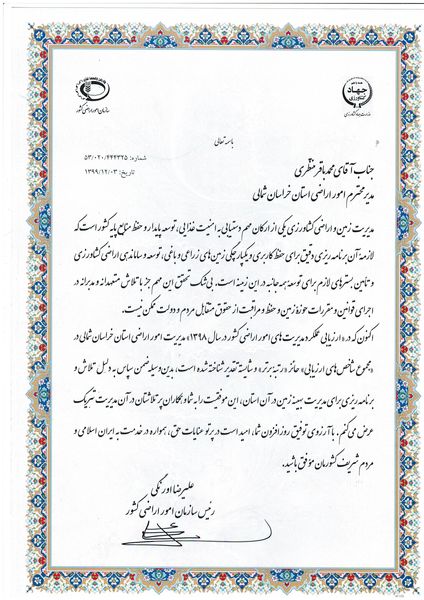 جهاد
کشاورزی
وزارت جهاد کشاورزی
سازمان امور اراضی کشور
باسمه تعالی
شماره: ۵۳/۰۲۰/۴۴۴۳۲۵
تاریخ: ۱۳۹۹/۱۲/۰۳
جناب آقای محمدباقر منظری
مدیر محترم امور اراضی استان خراسان شمالی
مدیریت زمین و اراضی کشاورزی یکی از ارکان مهم دستیابی به امنیت غذایی، توسعه پایدار و حفظ منابع پایه کشور است که
لازمه آن برنامه ریزی دقیق برای حفظ کاربری و یکپارچگی زمین های زراعی و باغی، توسعه و ساماندهی اراضی کشاورزی
و تامین بسترهای لازم برای توسعه همه جانبه در این زمینه است. بی شک تحقق این مهم جز با تلاش متعهدانه و مدبرانه در
اجرای قوانین و مقررات حوزه زمین و حفظ و مراقبت از حقوق متقابل مردم و دولت ممکن نیست.
اکنون که در «ارزیابی عملکرد مدیریت های امور اراضی کشور در سال ۱۳۹۸» مدیریت امور اراضی استان خراسان شمالی در
«مجموع شاخص های ارزیابی» حائز «رتبه برتر» و شایسته تقدیر شناخته شده است، بدین وسیله ضمن سپاس به دلیل تلاش و
برنامه ریزی برای مدیریت بهینه زمین در آن استان، این موفقیت را به شما و همکاران پرتلاشتان در آن مدیریت تبریک
عرض می کنم. با آرزوی توفیق روزافزون شما، امید است در پرتو عنایات حق، همواره در خدمت به ایران اسلامی و
مردم شریف کشورمان موفق باشید.
علیرضا اورنگی
رئیس سازمان امور اراضی کشور